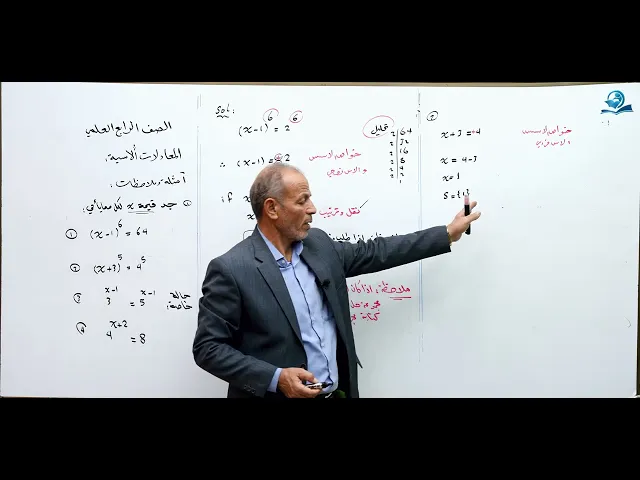 الصف الرابع العلمي
المعادلات الأسية:
أمثلة وملاحظات:
① جد قيمة x لكل مما يأتي:
① (x-1)⁶ = 64
② (x+3)⁵ = 4⁵
③ 3ˣ⁻¹ = 5ˣ⁻¹ حالة خاصة:
④ 4ˣ⁺² = 8
Sol:
(x-1)⁶ = 2⁶
∴ (x-1) = 2
خواص الاسس
والاس زوجي
if
نقل وترتيب
تحليل
2 | 64
2 | 32
2 | 16
2 | 8
2 | 4
2 | 2
1
ملاحظة: اذا كان
②
x+3 = 4
x = 4-3
x = 1
S = {1}
خواص الاسس
الاس فردي